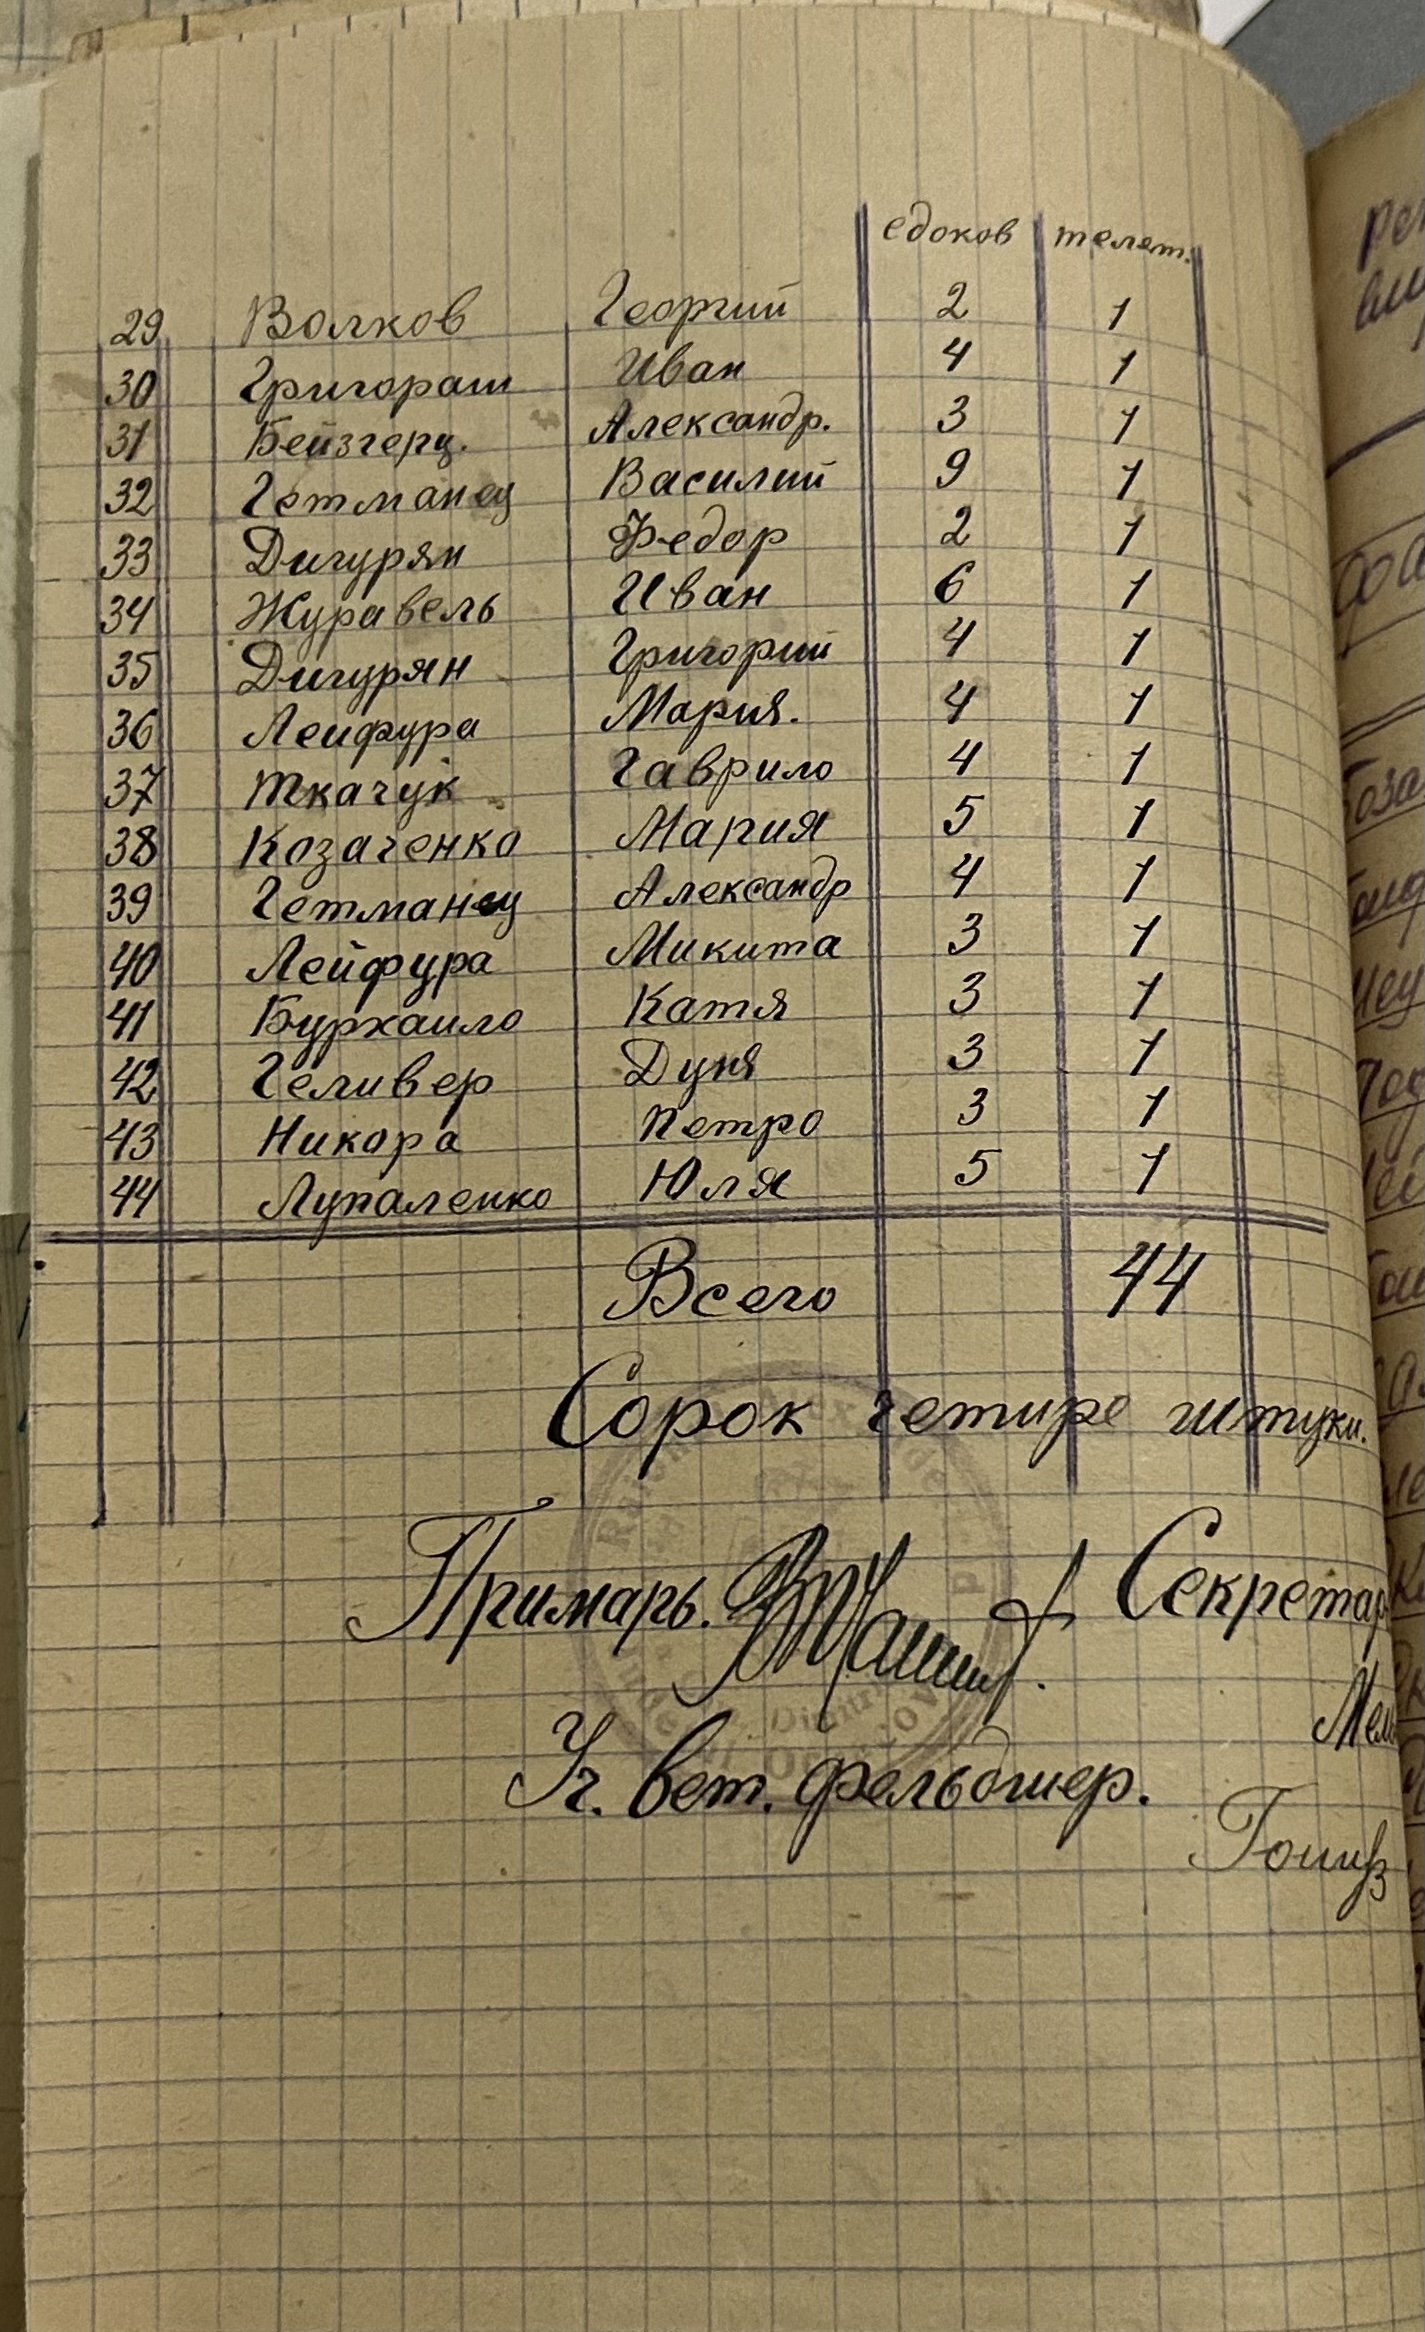 едоков телят.
29 Волков Георгий 2 1
30 Григораш Иван 4 1
31 Бейзгерц. Александр. 3 1
32 Гетманец Василий 9 1
33 Дигурян Федор 2 1
34 Журавель Иван 6 1
35 Дигурян Григорий 4 1
36 Лейфура Мария. 4 1
37 Ткачук Гаврило 4 1
38 Козаченко Мария 5 1
39 Гетманец Александр 4 1
40 Лейфура Микита 3 1
41 Бурхаило Катя 3 1
42 Геливер Дуня 3 1
43 Никора Петро 3 1
44 Лупаленко Юля 5 1
Всего 44
Сорок четире штуки.
Примарь. Секретар
Уч. вет. фельдшер.